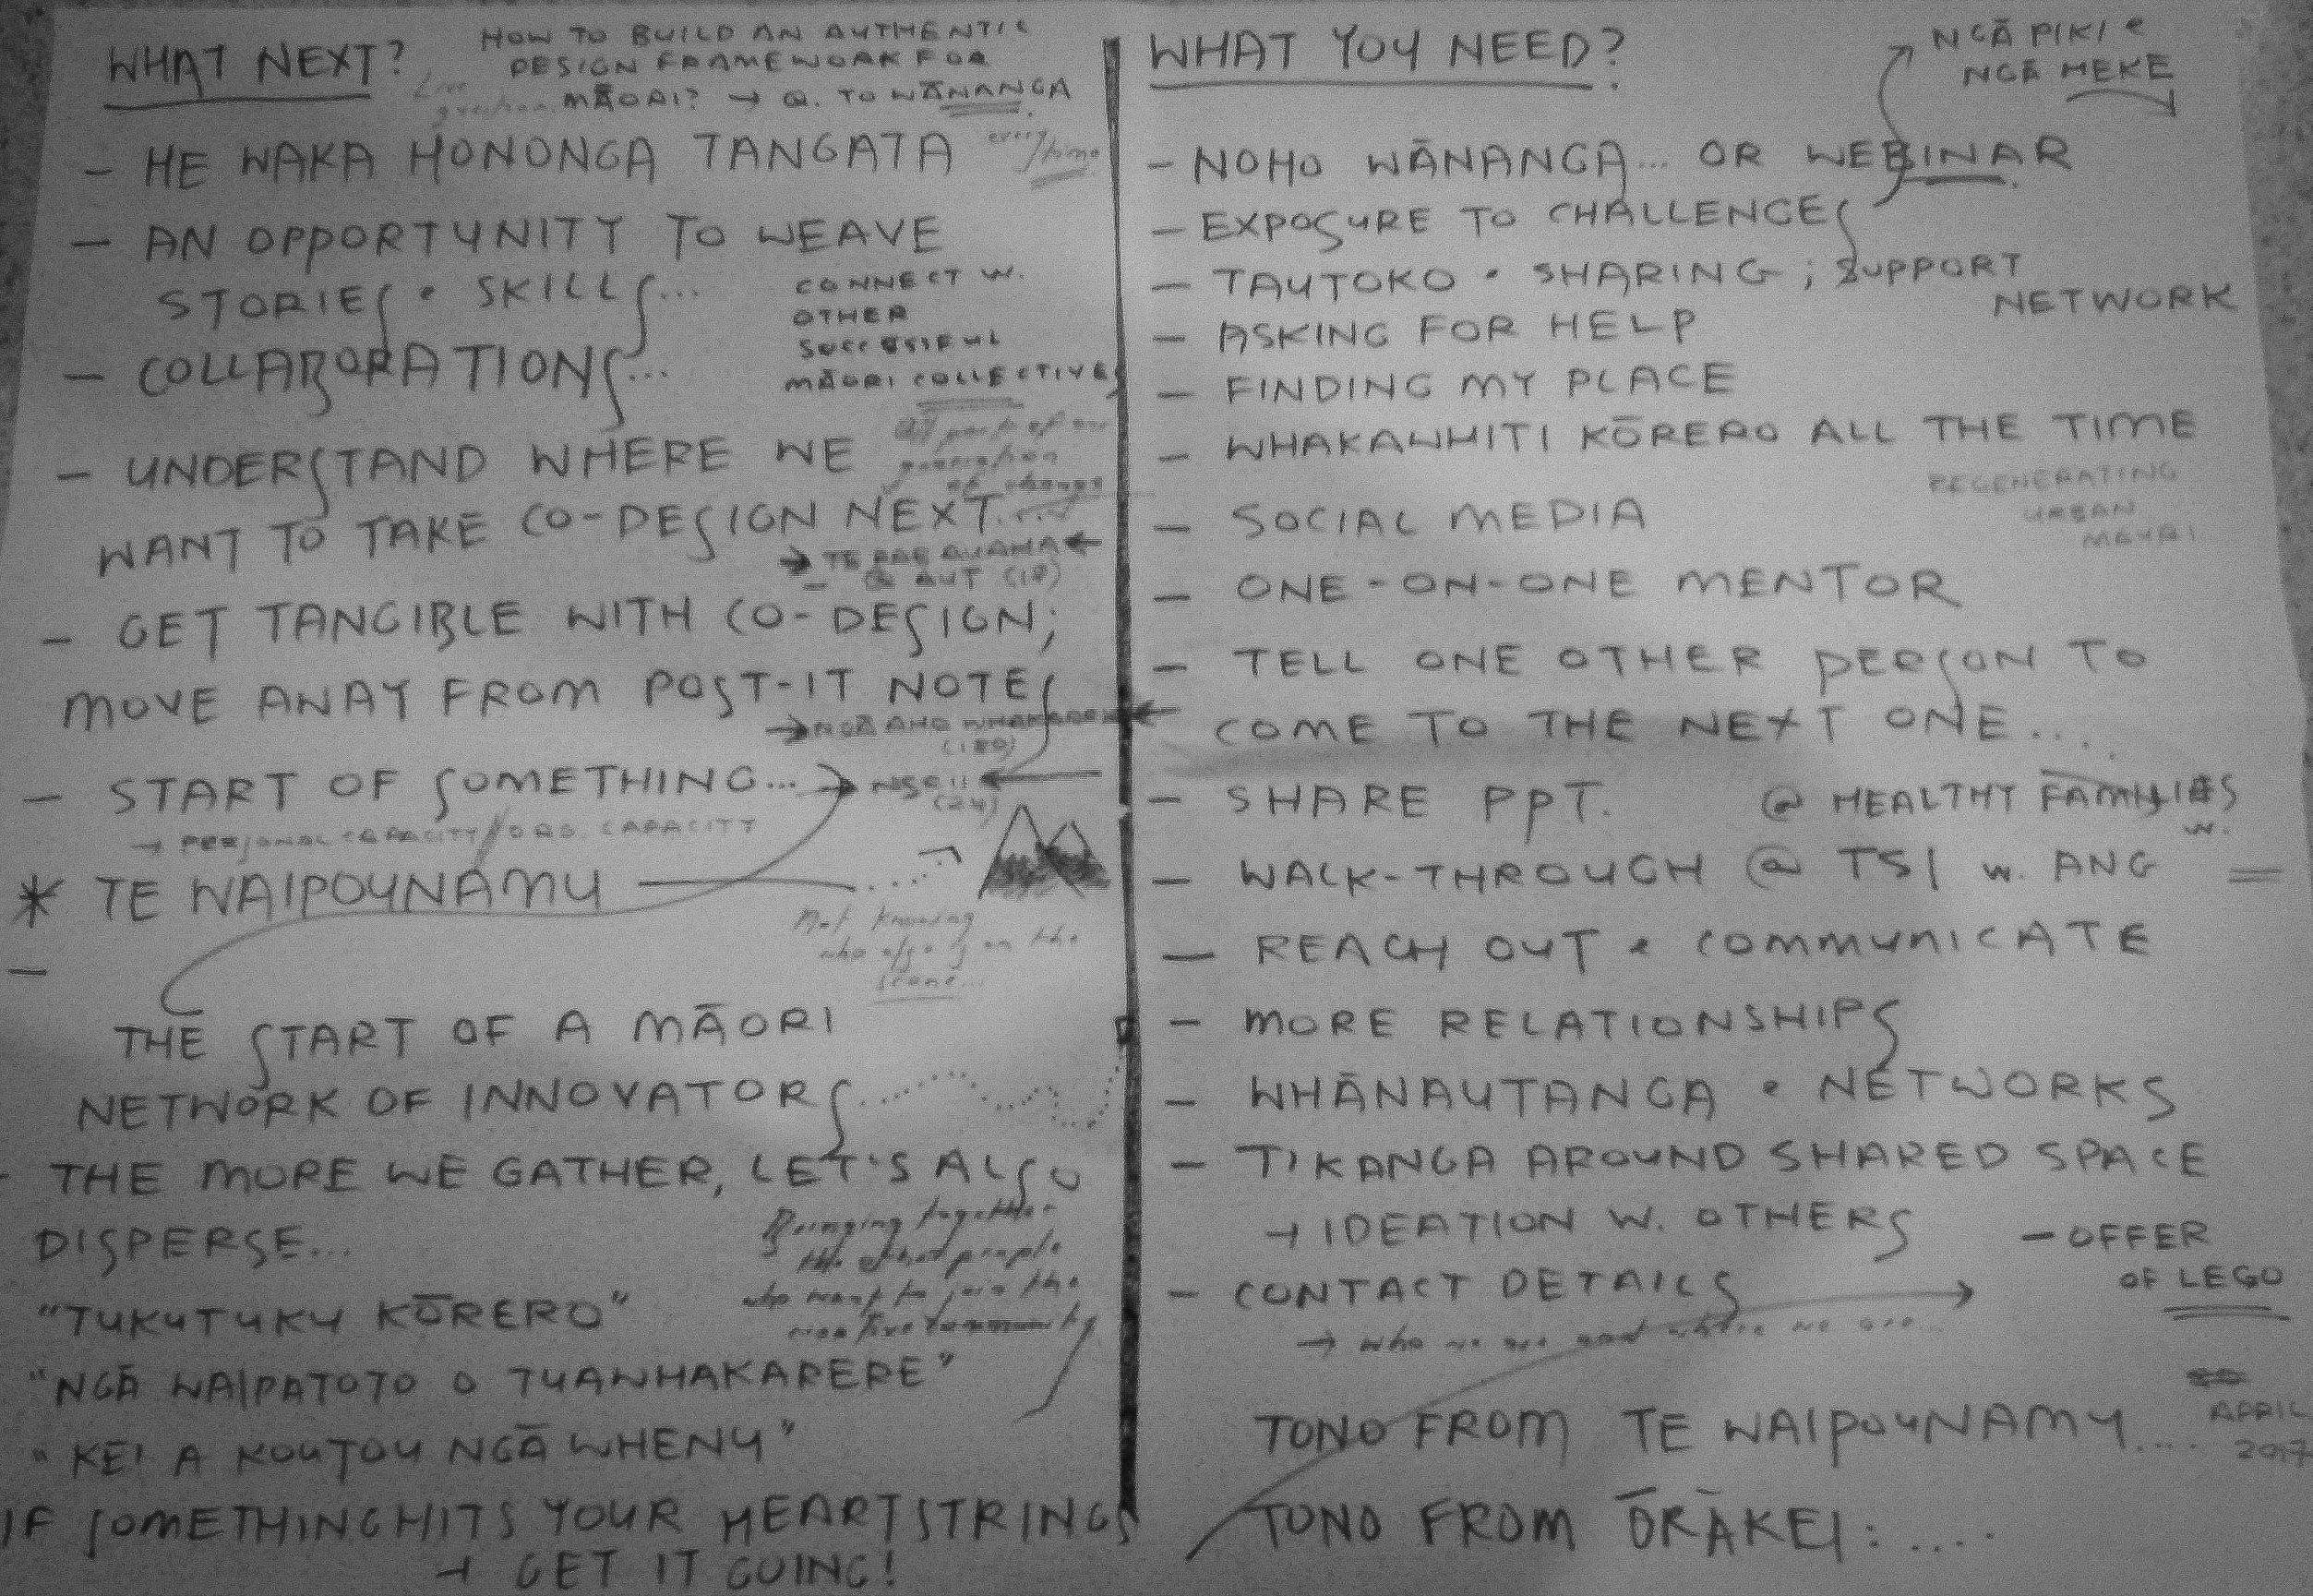 WHAT NEXT?
HOW TO BUILD AN AUTHENTIC
DESIGN FRAMEWORK FOR
MĀORI? → Q. TO WĀNANGA
Live
question
- HE WAKA HONONGA TANGATA
every
time
- AN OPPORTUNITY TO WEAVE
STORIES & SKILLS...
CONNECT W.
OTHER
SUCCESSFUL
MĀORI COLLECTIVES
- COLLABORATIONS...
- UNDERSTAND WHERE WE
WANT TO TAKE CO-DESIGN NEXT...
All part of our
generation
of change
→ TE ARA AUAHA ←
@ AUT (18)
- GET TANGIBLE WITH CO-DESIGN;
MOVE AWAY FROM POST-IT NOTES
→ NGĀ AHO WHAKAREI ←
(180)
- START OF SOMETHING...
(24)
→ PERSONAL CAPACITY / ORG. CAPACITY
* TE WAIPOUNAMU
Not knowing
who else is on the
scene...
-
THE START OF A MĀORI
NETWORK OF INNOVATORS
- THE MORE WE GATHER, LET'S ALSO
DISPERSE...
Bringing together
the other people
who want to join the
creative community
"TUKUTUKU KŌRERO"
"NGĀ WAIPATOTO O TUAWHAKARERE"
"KEI A KOUTOU NGĀ WHENU"
IF SOMETHING HITS YOUR HEARTSTRINGS
→ GET IT GOING!
WHAT YOU NEED?
NGĀ PIKI &
NGĀ HEKE
- NOHO WĀNANGA... OR WEBINAR
- EXPOSURE TO CHALLENGES
- TAUTOKO • SHARING ; SUPPORT
NETWORK
- ASKING FOR HELP
- FINDING MY PLACE
- WHAKAWHITI KŌRERO ALL THE TIME
REGENERATING
URBAN
MAURI
- SOCIAL MEDIA
- ONE-ON-ONE MENTOR
- TELL ONE OTHER PERSON TO
COME TO THE NEXT ONE....
- SHARE PPT.
@ HEALTHY FAMILIES
w.
- WALK-THROUGH @ TSI w. ANG
- REACH OUT & COMMUNICATE
- MORE RELATIONSHIPS
- WHĀNAUTANGA • NETWORKS
- TIKANGA AROUND SHARED SPACE
→ IDEATION W. OTHERS
- OFFER
OF LEGO
- CONTACT DETAILS
→ who we are and where we are...
TONO FROM TE WAIPOUNAMU....
APRIL
2017
TONO FROM ŌRĀKEI: ....